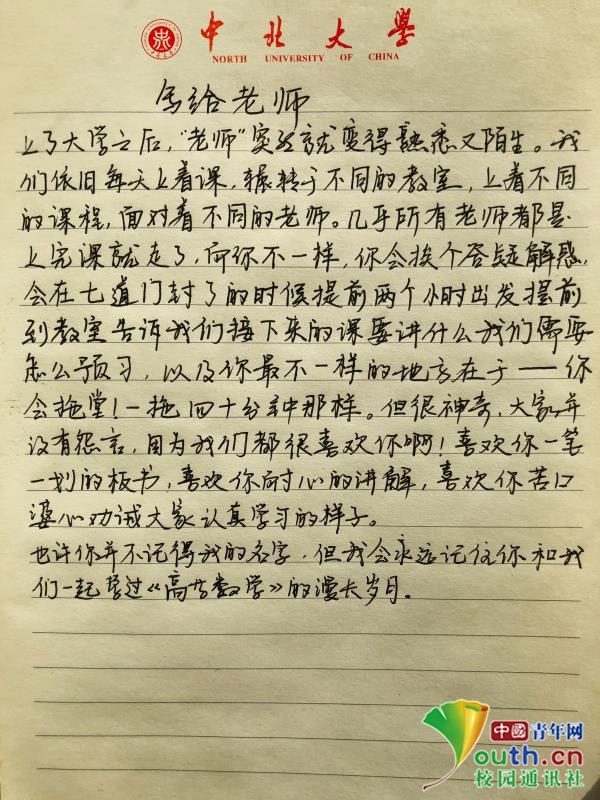 中北大学
NORTH UNIVERSITY OF CHINA
写给老师
上了大学之后，“老师”突然就变得熟悉又陌生。我
们依旧每天上着课，辗转于不同的教室，上着不同
的课程，面对着不同的老师。几乎所有老师都是
上完课就走了，而你不一样，你会挨个答疑解惑，
会在七道门封了的时候提前两个小时出发提前
到教室告诉我们接下来的课要讲什么我们需要
怎么预习，以及你最不一样的地方在于——你
会拖堂！一拖四十分钟那样。但很神奇，大家并
没有怨言，因为我们都很喜欢你啊！喜欢你一笔
一划的板书，喜欢你耐心的讲解，喜欢你苦口
婆心劝诫大家认真学习的样子。
也许你并不记得我的名字，但我会永远记住你和我
们一起学过《高等数学》的漫长岁月。
中國青年网
youth.cn
校园通讯社